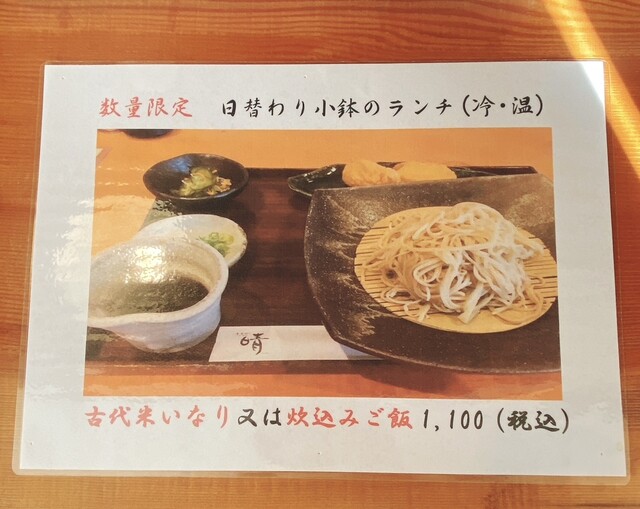 数量限定 日替わり小鉢のランチ(冷・温)
晴
古代米いなり又は炊込みご飯1,100(税込)